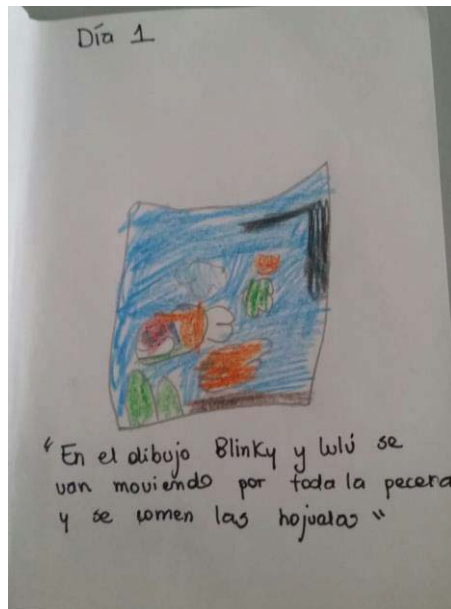 Día 1
"En el dibujo Blinky y lulú se
van moviendo por toda la pecera
y se comen las hojuelas"